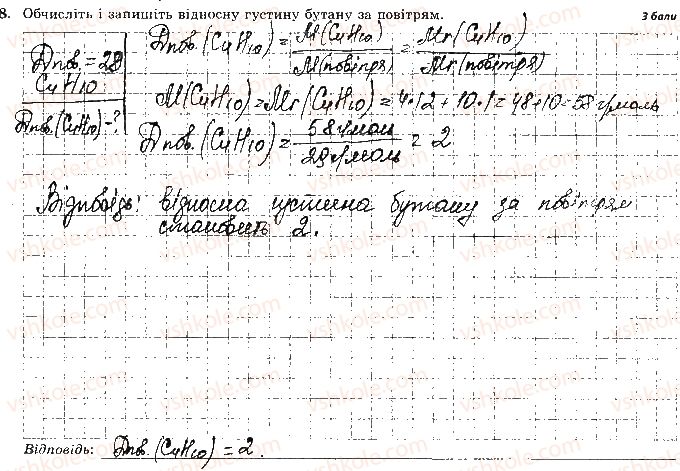 8. Обчисліть і запишіть відносну густину бутану за повітрям. 3 бали
Dпов. = 29
C4H10
Dпов. (C4H10) - ?
Dпов. (C4H10) = M(C4H10) / M(повітря) = Mr(C4H10) / Mr(повітря)
M(C4H10) = Mr(C4H10) = 4•12 + 10•1 = 48 + 10 = 58 г/моль
Dпов. (C4H10) = 58 г/моль / 29 г/моль = 2
Відповідь: відносна густина бутану за повітрям
становить 2.
Відповідь: Dпов. (C4H10) = 2.